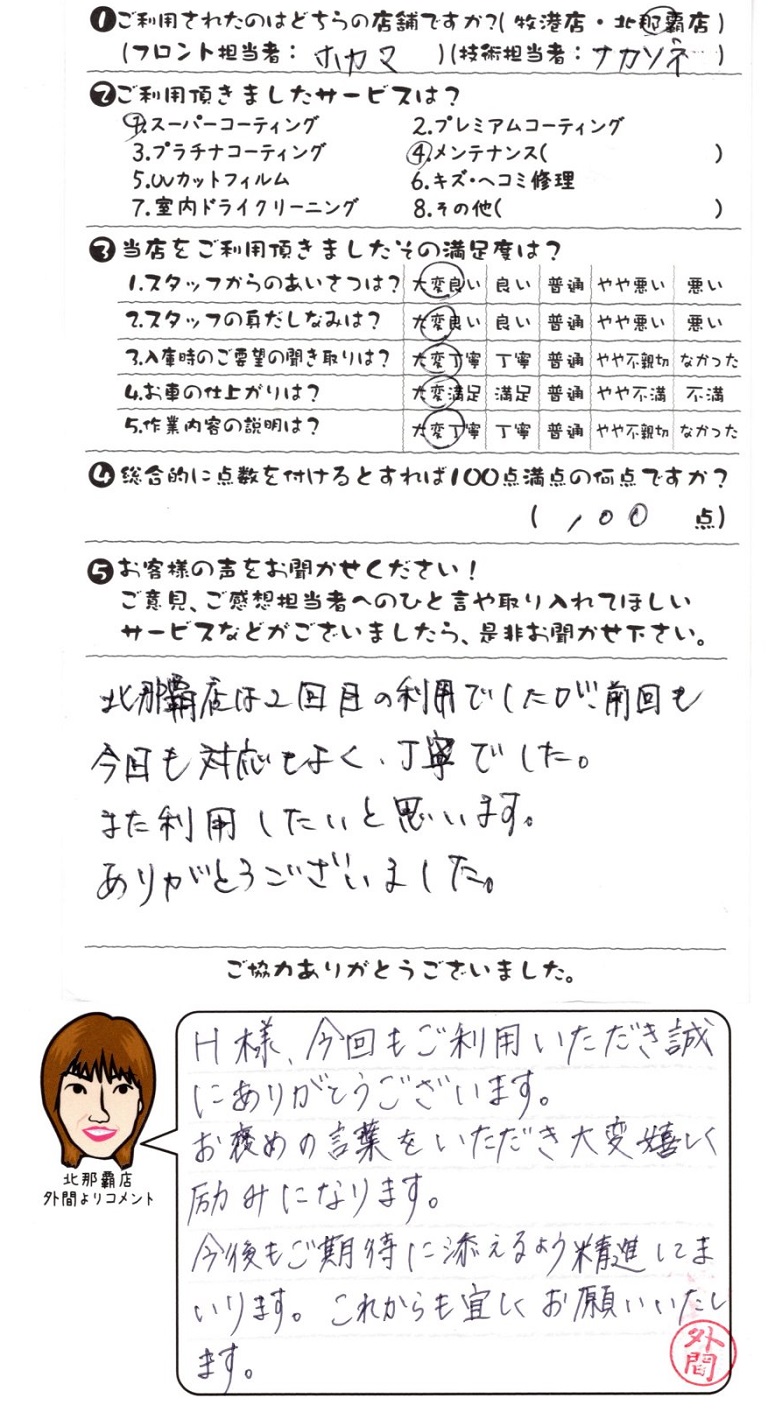 ❶ご利用されたのはどちらの店舗ですか?(牧港店・北那覇店)
(フロント担当者: ホカマ )(技術担当者: ナカソネ )
❷ご利用頂きましたサービスは?
1.スーパーコーティング 2.プレミアムコーティング
3.プラチナコーティング 4.メンテナンス( )
5.UVカットフィルム 6.キズ・ヘコミ修理
7.室内ドライクリーニング 8.その他( )
❸当店をご利用頂きましたその満足度は?
1.スタッフからのあいさつは? 大変良い 良い 普通 やや悪い 悪い
2.スタッフの身だしなみは? 大変良い 良い 普通 やや悪い 悪い
3.入庫時のご要望の聞き取りは? 大変丁寧 丁寧 普通 やや不親切 なかった
4.お車の仕上がりは? 大変満足 満足 普通 やや不満 不満
5.作業内容の説明は? 大変丁寧 丁寧 普通 やや不親切 なかった
❹総合的に点数を付けるとすれば100点満点の何点ですか?
( 100 点)
❺お客様の声をお聞かせください!
ご意見、ご感想担当者へのひと言や取り入れてほしい
サービスなどがございましたら、是非お聞かせ下さい。
北那覇店は2回目の利用でしたが、前回も
今回も対応もよく、丁寧でした。
また利用したいと思います。
ありがとうございました。
ご協力ありがとうございました。
H様、今回もご利用いただき誠
にありがとうございます。
お褒めの言葉をいただき大変嬉しく
励みになります。
今後もご期待に添えるよう精進してま
いります。これからも宜しくお願いいたし
ます。
北那覇店
外間よりコメント
外間